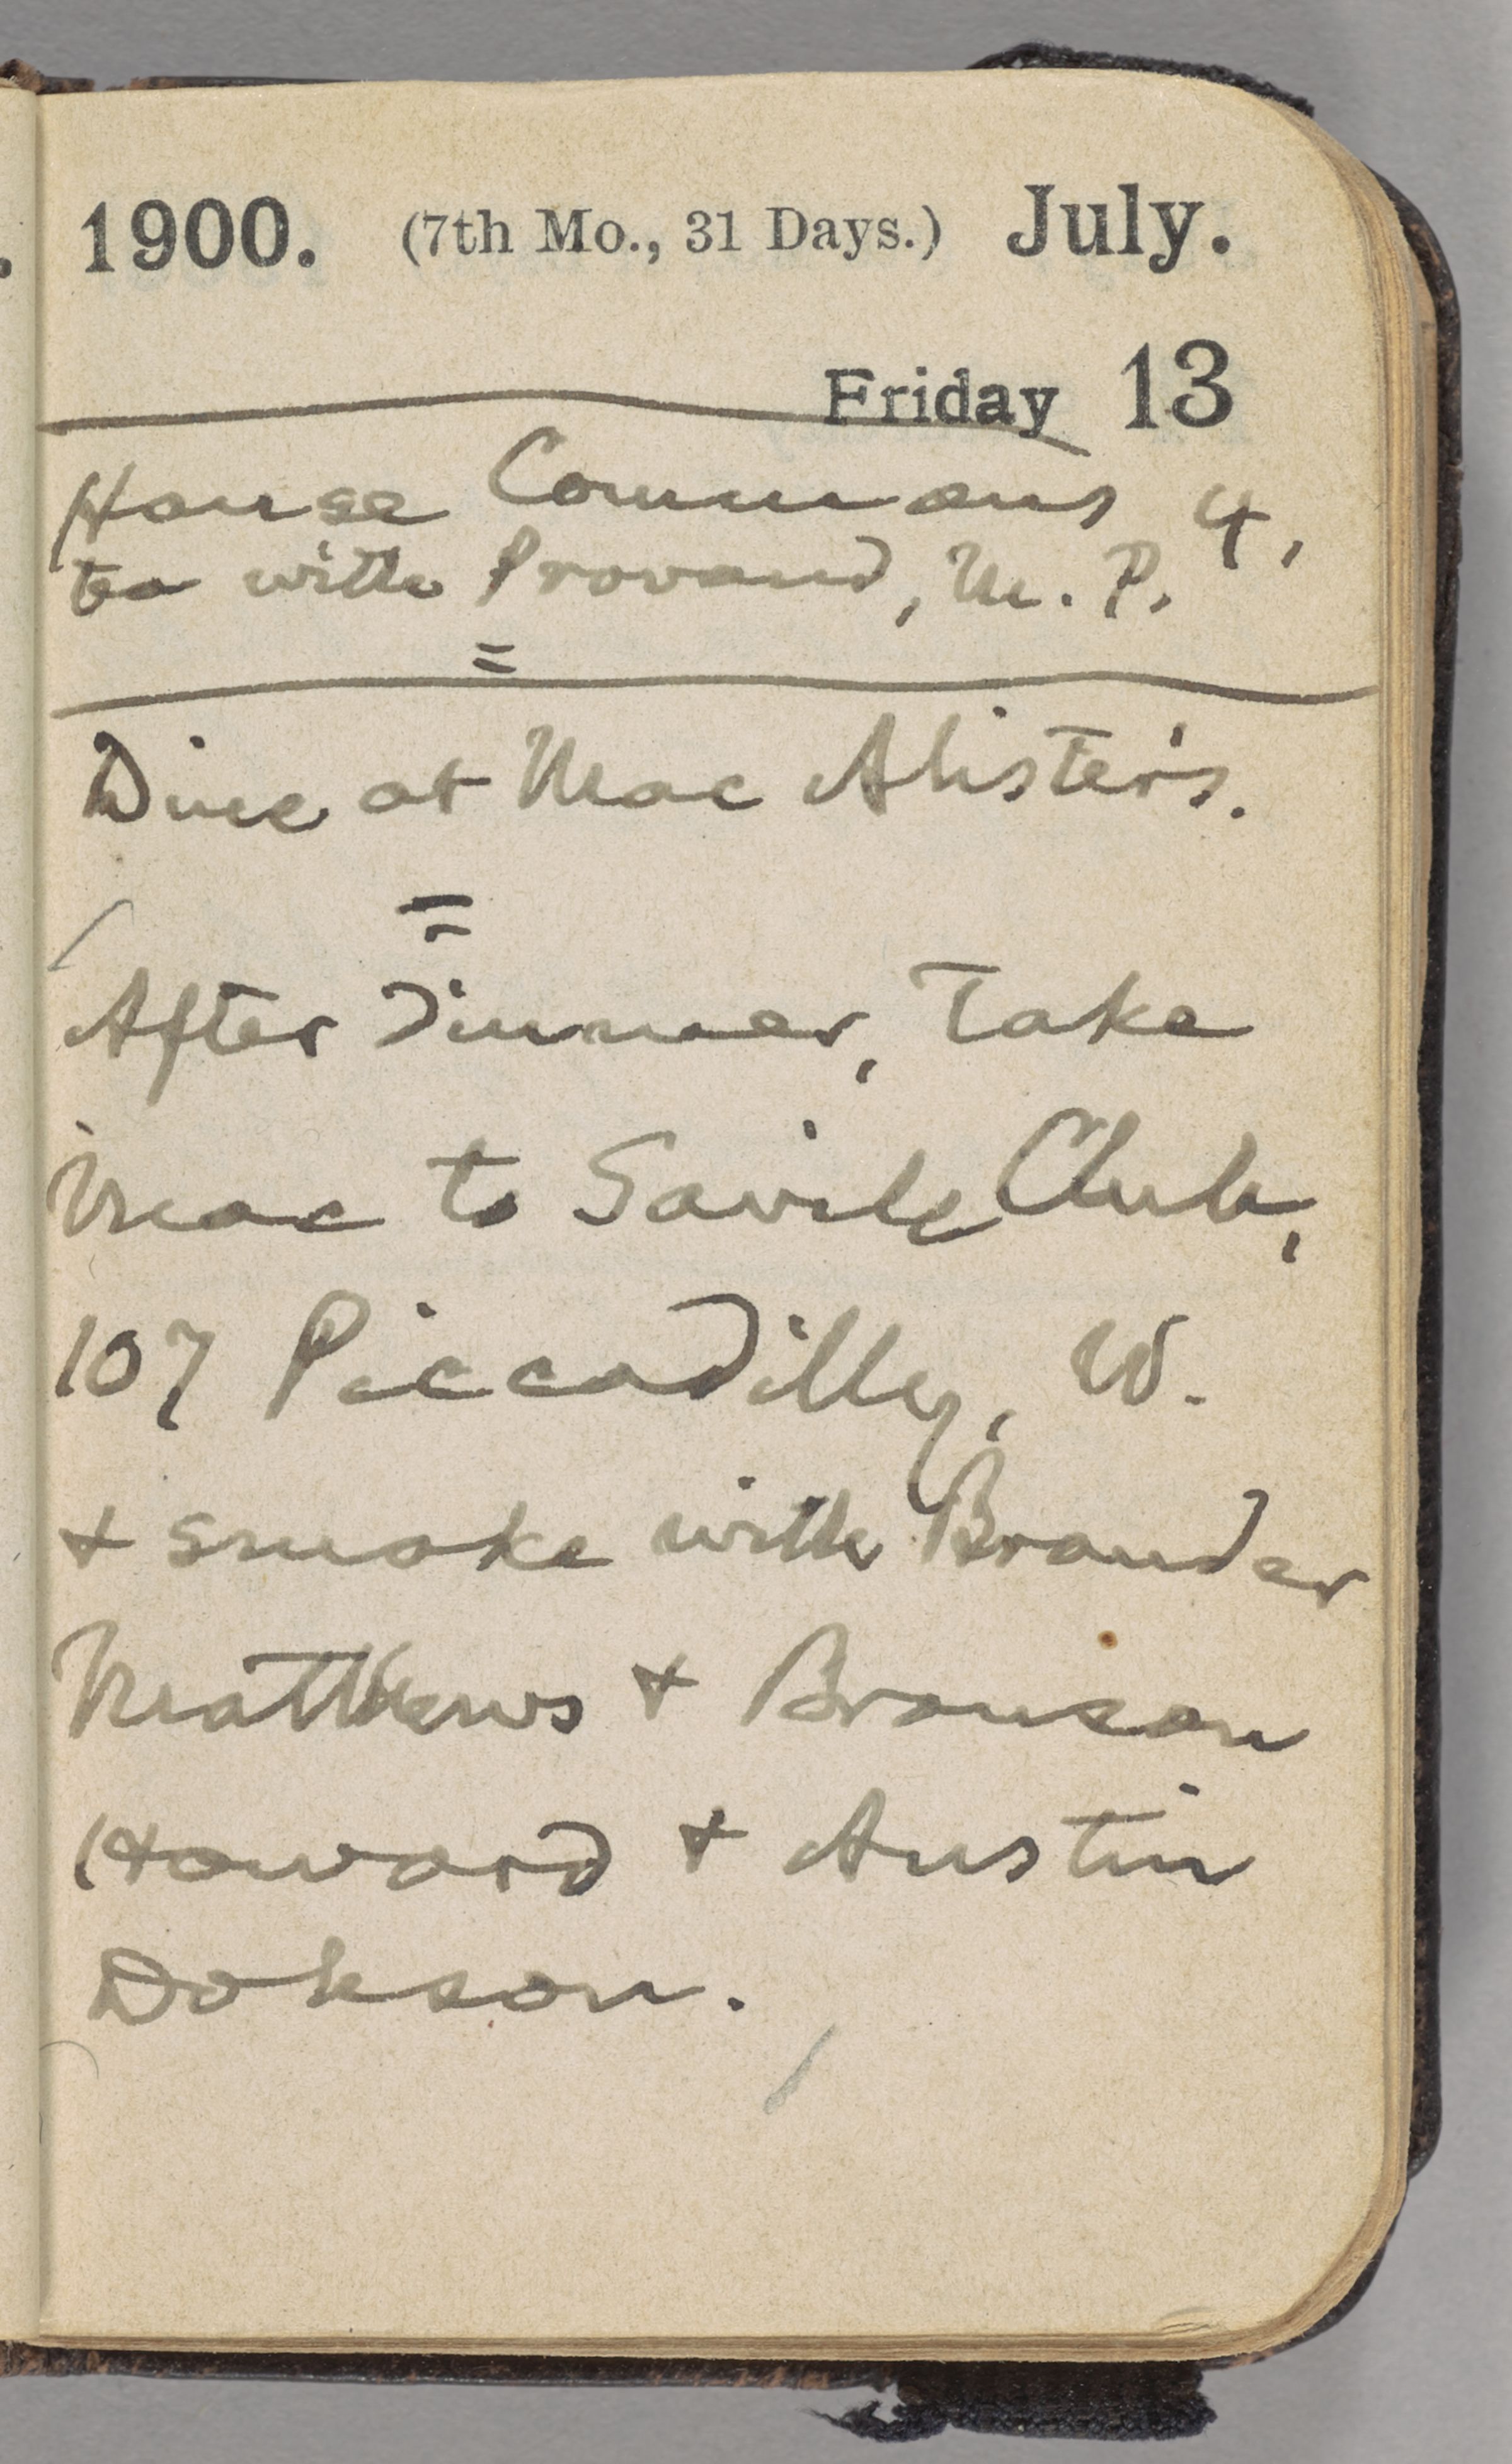 1900. (7th Mo., 31 Days.) July.
Friday 13
House Commons 4,
tea with Provand, M.P.
=
Dine at MacAlister's.
=
After dinner, take
Mac to Savile Club,
107 Piccadilly, W.
+ smoke with Brander
Matthews + Bronson
Howard + Austin
Dobson.